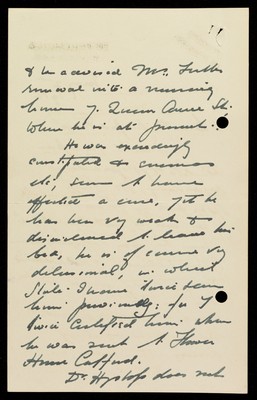 & he advised Mr. Tuths
removal into a nursing
home 7. Queen Anne St.
where he is at present.
He was exceedingly
constipated & enemas
etc, seem to have
effected a cure, yet he
has been very weak &
disinclined to leave his
bed, he is of course very
delusional, in which
State I have twice seen
him previously: for I
twice Certified him when
he was sent to
House Catford.
Dr. Hyslop does not